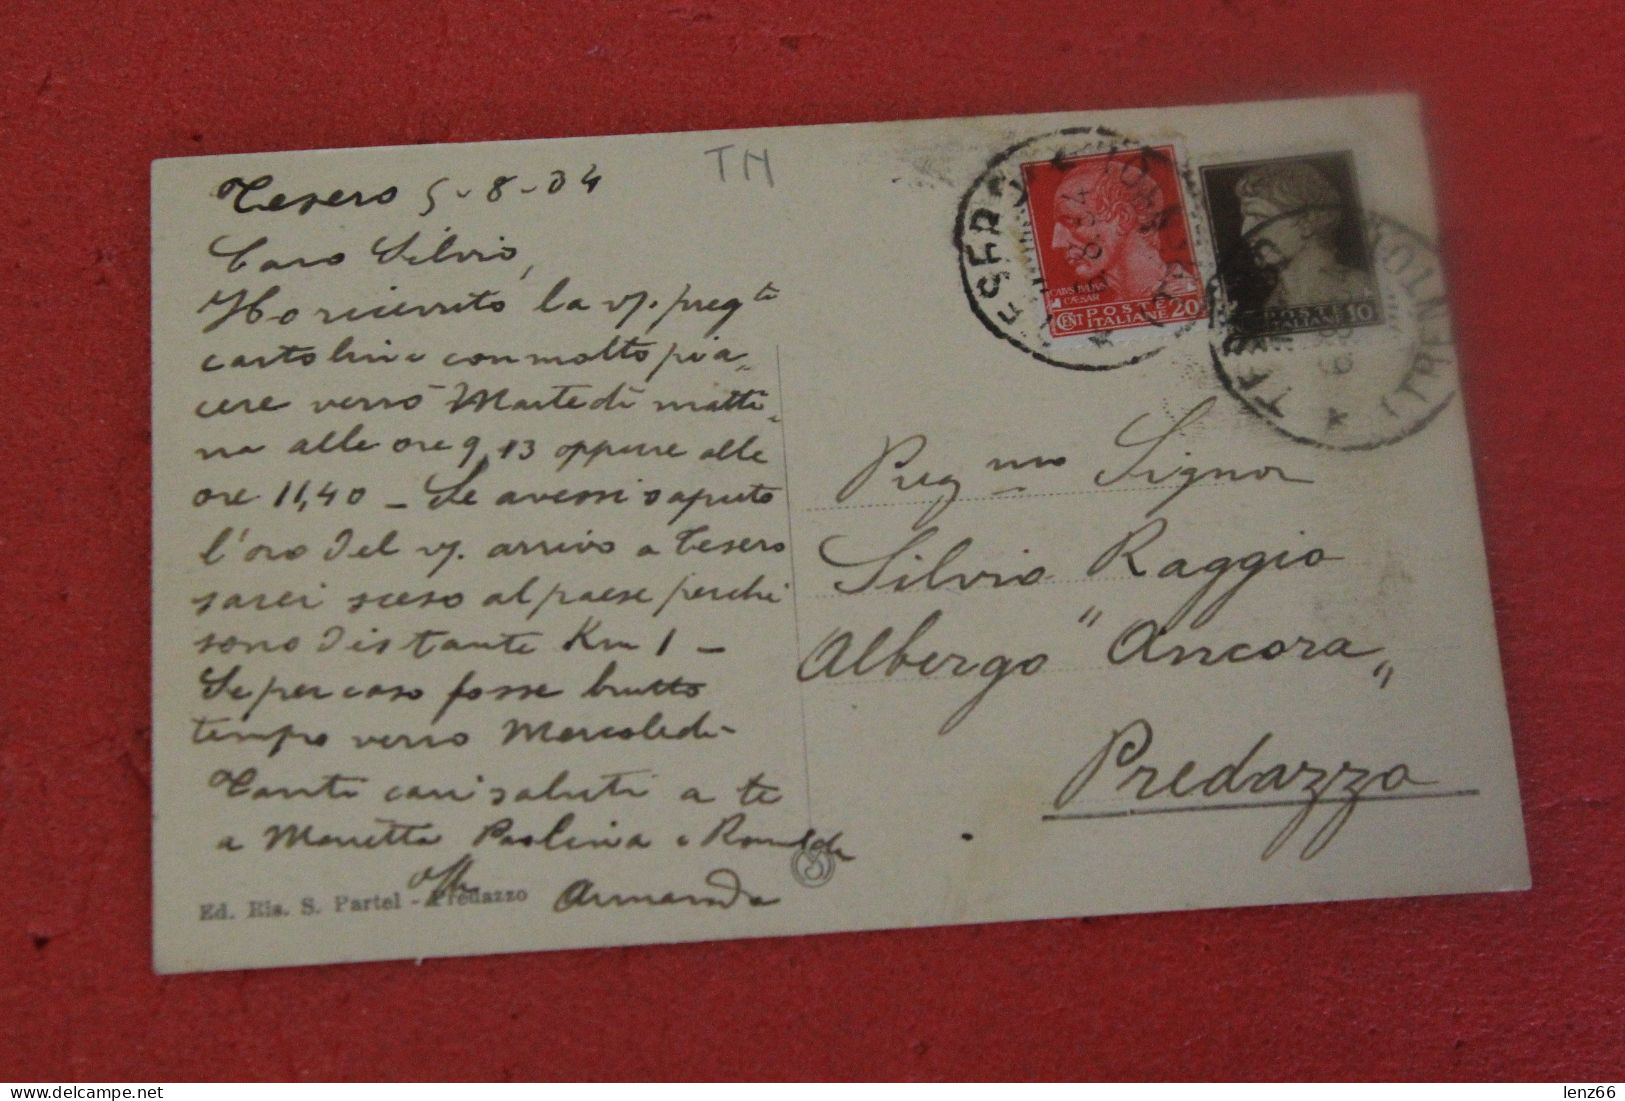 TN
Tesero 5-8-34
Caro Silvio,
Ho ricevuto la vs. preg.ti
cartolina con molto pia„
cere verrò Martedì matti„
na alle ore 9,13 oppure alle
ore 11,40 – Se avessi saputo
l'ora del vs. arrivo a Tesero
sarei sceso al paese perchè
sono distante Km 1 –
Se per caso fosse brutto
tempo verrò Mercoledì –
Tanti cari saluti a te
a Paolina e
Armando
Ed. Ris. S. Partel - Predazzo
CAIVS IVLIVS
CÆSAR
CENT POSTE
ITALIANE 20
10
TESERO
TRENTO
Preg.mo Signor
Silvio Raggio
Albergo "Ancora„
Predazzo
lenz66